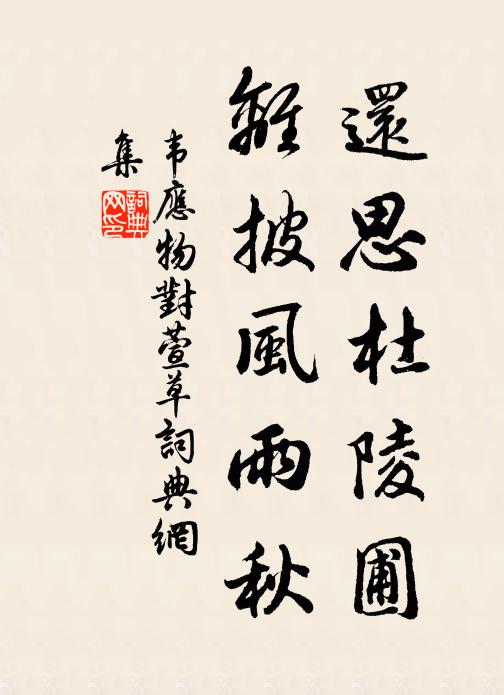 還思杜陵圃
離披風雨秋
韦應物對萱草詞典網
集
詞典
网印